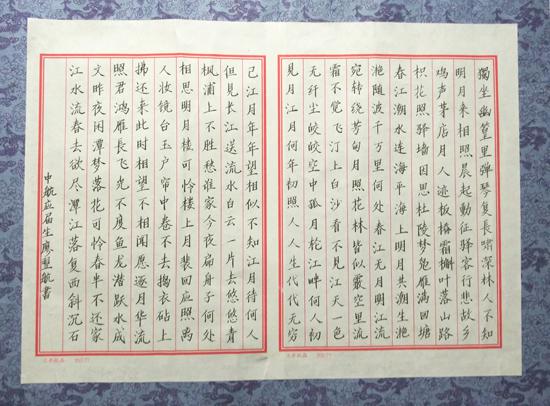 獨坐幽篁里弹琴复長啸深林人不知
明月来相照晨起動征驿客行悲故乡
鸡声茅店月人迹板橋霜槲叶落山路
枳花照驿墙因思杜陵梦凫雁满回塘
春江潮水连海平海上明月共潮生滟
滟随波千万里何处春江无月明江流
宛转绕芳甸月照花林皆似霰空里流
霜不觉飞汀上白沙看不見江天一色
无纤尘皎皎空中孤月轮江畔何人初
見月江月何年初照人人生代代无穷
已江月年年望相似不知江月待何人
但見长江送流水白云一片去悠悠青
枫浦上不胜愁谁家今夜扁舟子何处
相思明月楼可怜楼上月裴回应照离
人妆镜台玉户帘中卷不去捣衣砧上
拂还来此时相望不相闻愿逐月华流
照君鸿雁長飞光不度鱼龙潜跃水成
文昨夜闲潭梦落花可怜春半不还家
江水流春去欲尽潭江落复西斜沉石
中航应届生廖航書